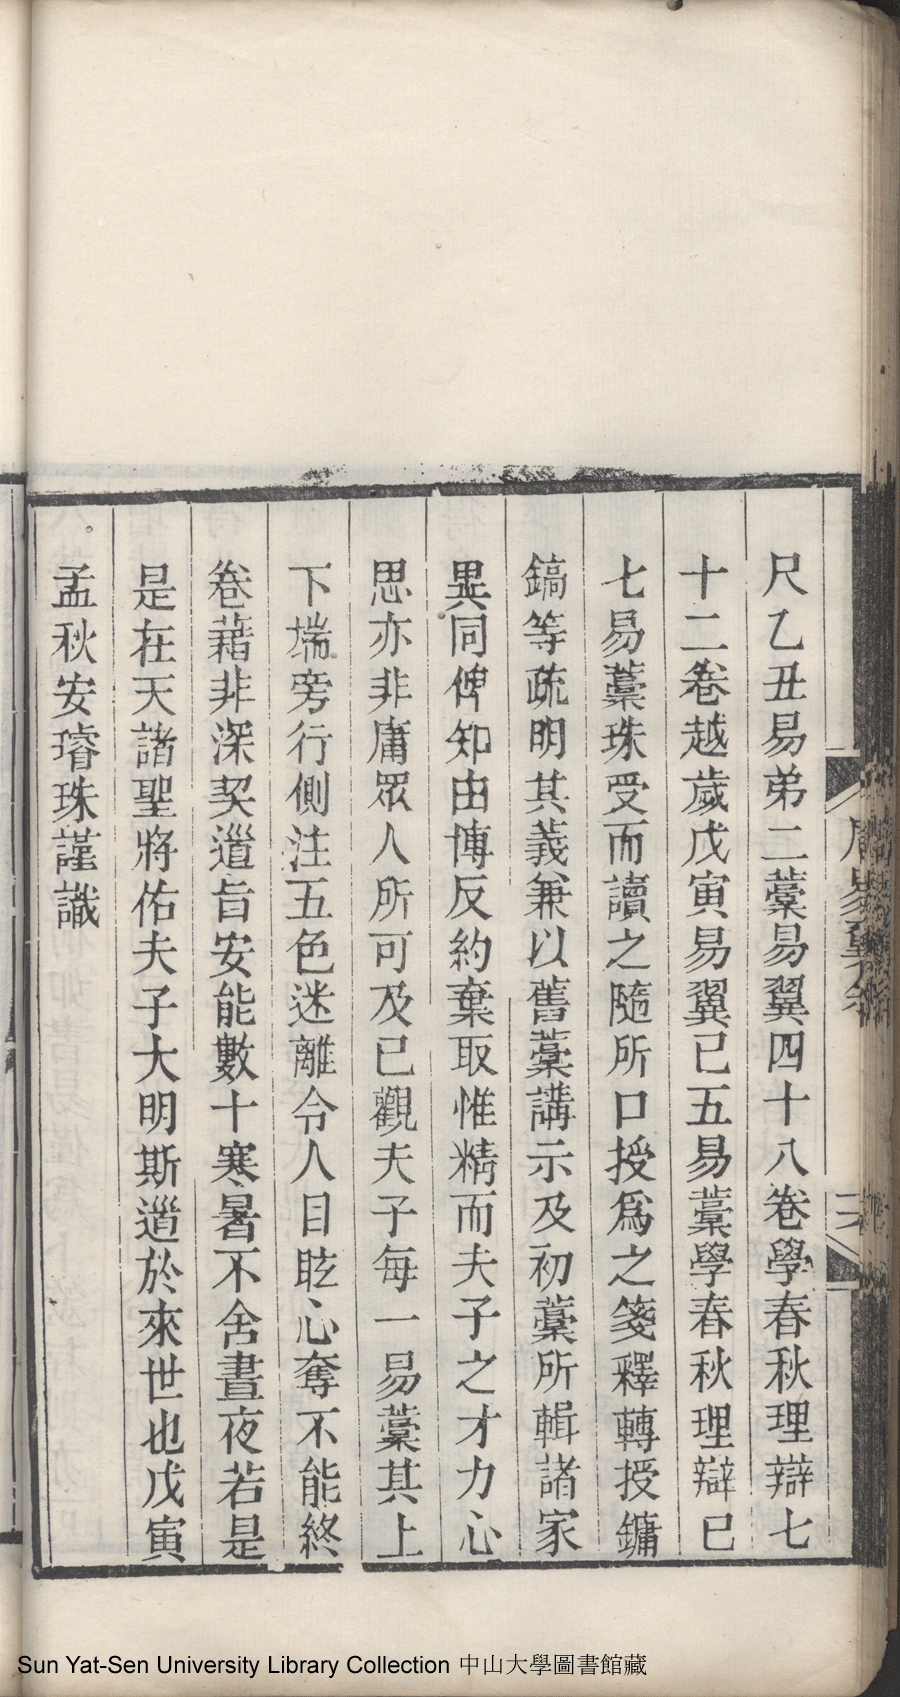 尺乙丑易弟二藁易翼四十八卷學春秋理辯七
十二卷越歲戊寅易翼已五易藁學春秋理辯已
七易藁珠受而讀之隨所口授爲之箋釋轉授鏞
鎬等疏明其義兼以舊藁講示及初藁所輯諸家
異同俾知由博反約棄取惟精而夫子之才力心
思亦非庸眾人所可及已觀夫子每一易藁其上
下端旁行側注五色迷離令人目眩心奪不能終
卷藉非深契道旨安能數十寒暑不舍晝夜若是
是在天諸聖將佑夫子大明斯道於來世也戊寅
孟秋安璿珠謹識
Sun Yat-Sen University Library Collection 中山大學圖書館藏